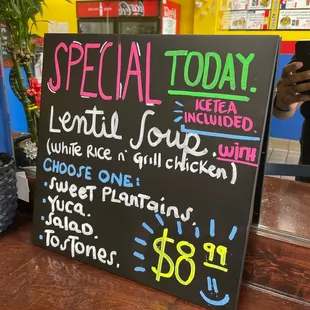 Coca-Cola
SPECIAL TODAY.
ICETEA
INCLUIDED.
Lentil Soup. with
(white Rice n' Grill chicken)
CHOOSE ONE:
.Sweet Plantains.
.Yuca.
.Salad.
.Tostones.
$8.99